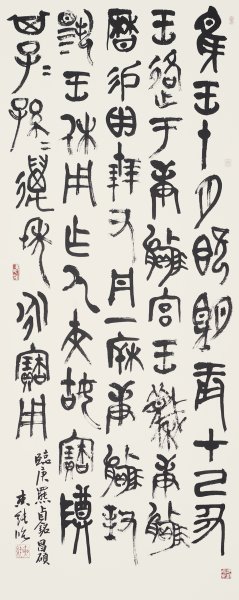 隹王十月既望辰才己丑
王各于庚嬴宮王蔑庚嬴
曆易貝十朋又丹一𣏟庚嬴對
揚王休用乍厥文姑寶尊
其子二孫二萬年永寶用
臨庚羆卣銘昌碩